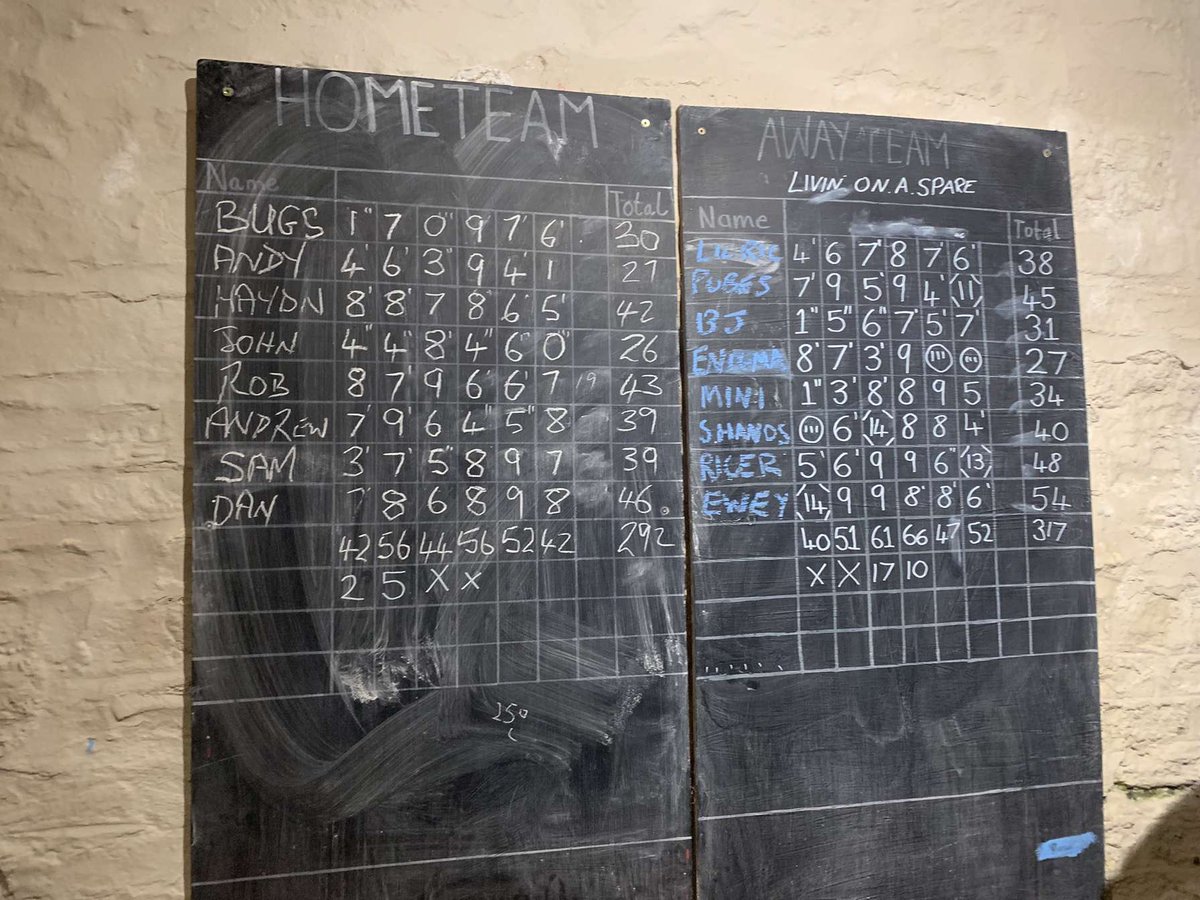 HOMETEAM
Name Total
BUGS 1" 7 0" 9 7' 6' 30
ANDY 4' 6' 3" 9 4' 1 27
HAYDN 8' 8' 7 8' 6 5' 42
JOHN 4" 4" 8' 4" 6 0" 26
ROB 8 7' 9 6' 6' 7 19 43
ANDREW 7' 9' 6 4" 5" 8 39
SAM 3' 7' 5" 8 9 7 39
DAN 7' 8 6 8 9 8 46
42 56 44 56 52 42 292
2 5 X X
250
AWAY TEAM
LIVIN' ON.A.SPARE
Name Total
4' 6 7' 8 7' 6' 38
PUBGS 7' 9 5' 9 4' (11) 45
BJ 1" 5" 6" 7' 5' 7' 31
ENIGMA 8' 7' 3' 9 27
MINI 1" 3' 8' 8 9 5 34
S.HANDS 6' (14) 8 8 4' 40
RICER 5' 6' 9 9 6" (13) 48
EWEY (14) 9 9 8' 8' 6' 54
40 51 61 66 47 52 317
X X 17 10